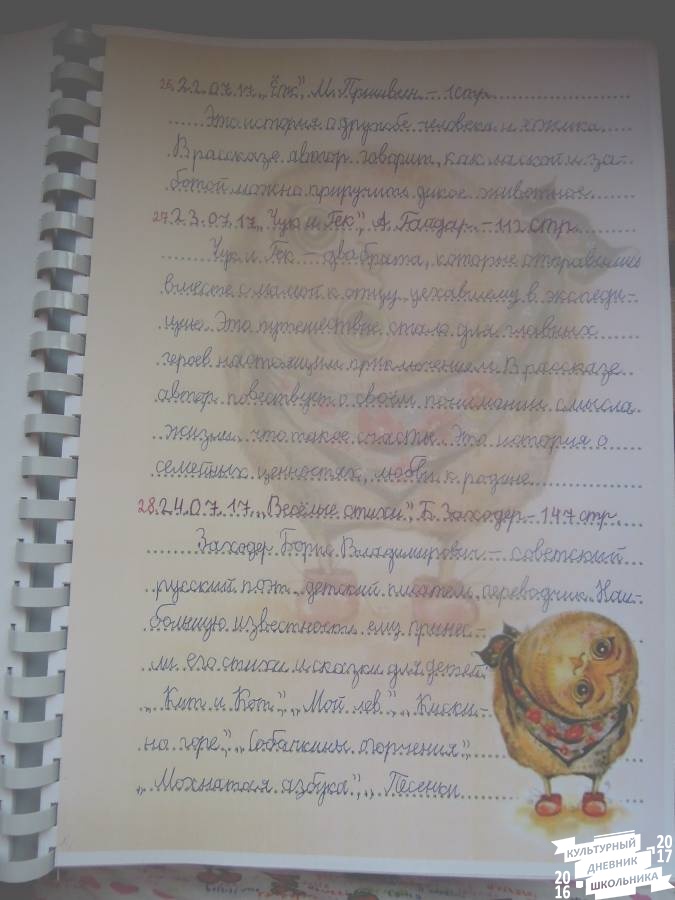 26. 22.07.17 „Ёж", М. Пришвин. – 1 стр
Это история о дружбе человека и ёжика.
В рассказе автор говорит, как лаской и за-
ботой можно приручить дикое животное.
27. 23.07.17 „Чук и Гек", А. Гайдар. – 112 стр.
Чук и Гек – два брата, которые отправились
вместе с мамой к отцу, уехавшему в экспеди-
цию. Это путешествие стало для главных
героев настоящим приключением. В рассказе
автор повествует о своём понимании смысла
жизни, что такое счастье. Эта история о
семейных ценностях, любви к родине.
28. 24.07.17 „Весёлые стихи", Б. Заходер – 147 стр
Заходер Борис Владимирович – советский
русский поэт, детский писатель, переводчик. Наи-
большую известность ему принес-
ли его стихи и сказки для детей:
„Кит и Кот", „Мой лев", „Кискі-
но горе", „Собачкины огорчения",
„Мохнатая азбука", „Песенки
КУЛЬТУРНЫЙ
ДНЕВНИК
ШКОЛЬНИКА
2016
2017